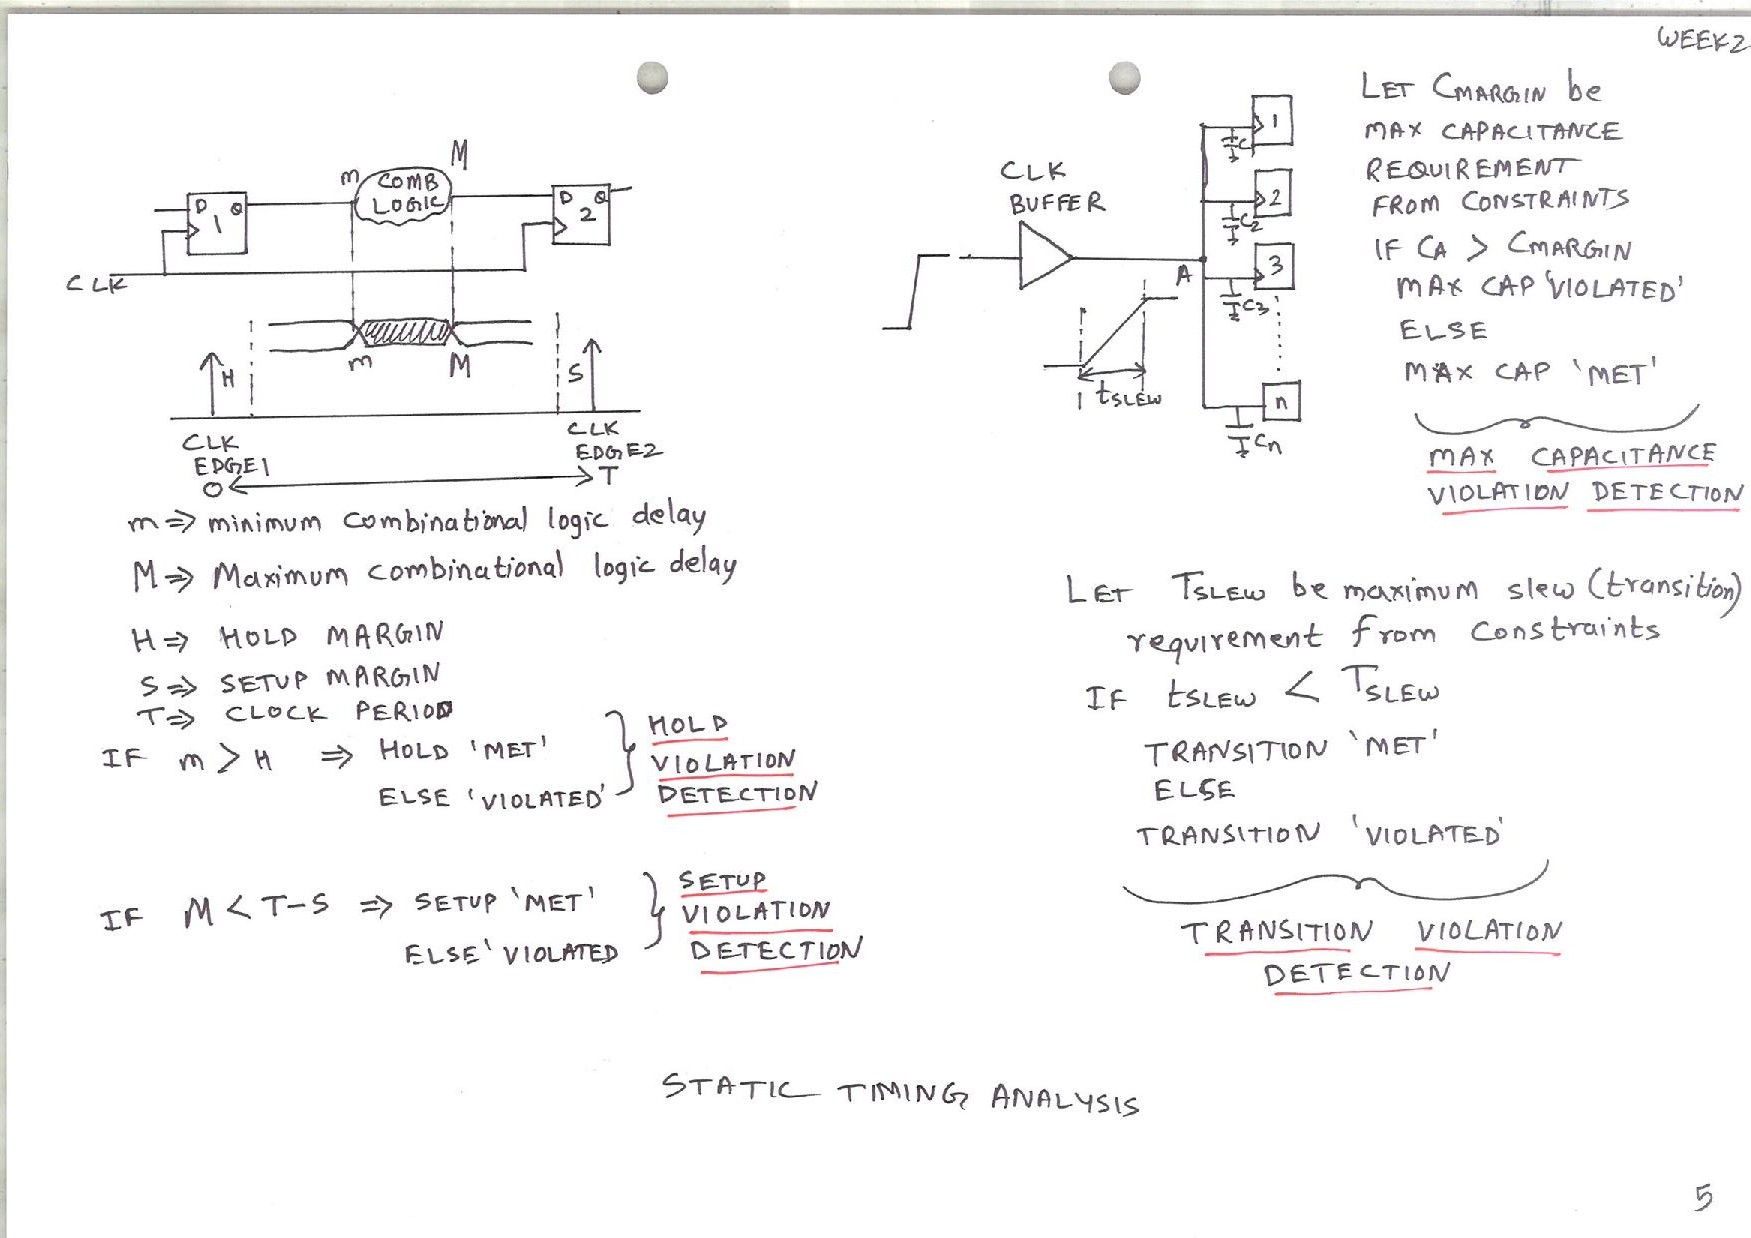 WEEK2
m
M
COMB
LOGIC
D Q
1
D Q
2
CLK
m
M
H
S
CLK
EDGE1
CLK
EDGE2
O
T
m ⇒ minimum combinational logic delay
M ⇒ Maximum combinational logic delay
H ⇒ HOLD MARGIN
S ⇒ SETUP MARGIN
T ⇒ CLOCK PERIOD
IF m > H ⇒ HOLD 'MET'
ELSE 'VIOLATED'
HOLD
VIOLATION
DETECTION
IF M < T-S ⇒ SETUP 'MET'
ELSE 'VIOLATED
SETUP
VIOLATION
DETECTION
CLK
BUFFER
A
tSLEW
1
C1
2
C2
3
C3
n
Cn
LET CMARGIN be
MAX CAPACITANCE
REQUIREMENT
FROM CONSTRAINTS
IF CA > CMARGIN
MAX CAP 'VIOLATED'
ELSE
MAX CAP 'MET'
MAX CAPACITANCE
VIOLATION DETECTION
LET TSLEW be maximum slew (transition)
requirement from constraints
IF tSLEW < TSLEW
TRANSITION 'MET'
ELSE
TRANSITION 'VIOLATED'
TRANSITION VIOLATION
DETECTION
STATIC TIMING ANALYSIS
5